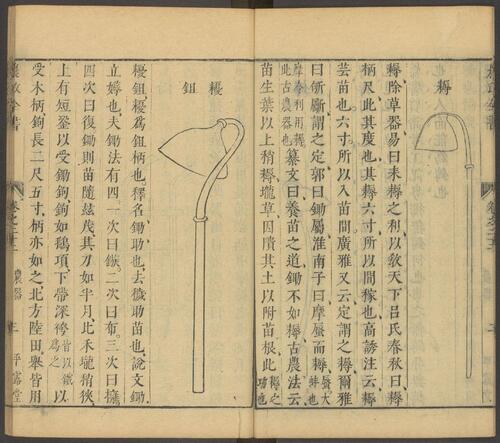 耨
耨除草器易曰耒耨之利以敎天下呂氏春秋曰耨
柄尺此其度也其耨六寸所以間稼也高誘注云耨
芸苗也六寸所以入苗間廣雅又云定謂之耨爾雅
曰斪斸謂之定郭曰鋤屬淮南子曰摩蜃而耨蜃大蛤也
摩令利用耨此古農器也纂文曰養苗之道鋤不如耨古農法云
苗生葉以上稍耨壠草因隤其土以附苗根此耨之功也
耰鉏
耰鉏耰爲鉏柄也釋名鋤助也去穢助苗也說文鋤
立薅也夫鋤法有四一次曰鏃二次曰布三次曰擁
四次曰復鋤則苗隨茲茂其刃如半月比禾壠稍狹
上有短銎以受鋤鉤鉤如鵝項下帶深袴皆以鐵爲之以
受木柄鉤長二尺五寸柄亦如之北方陸田舉皆用
農政全書
卷之二十二
農器
平露堂